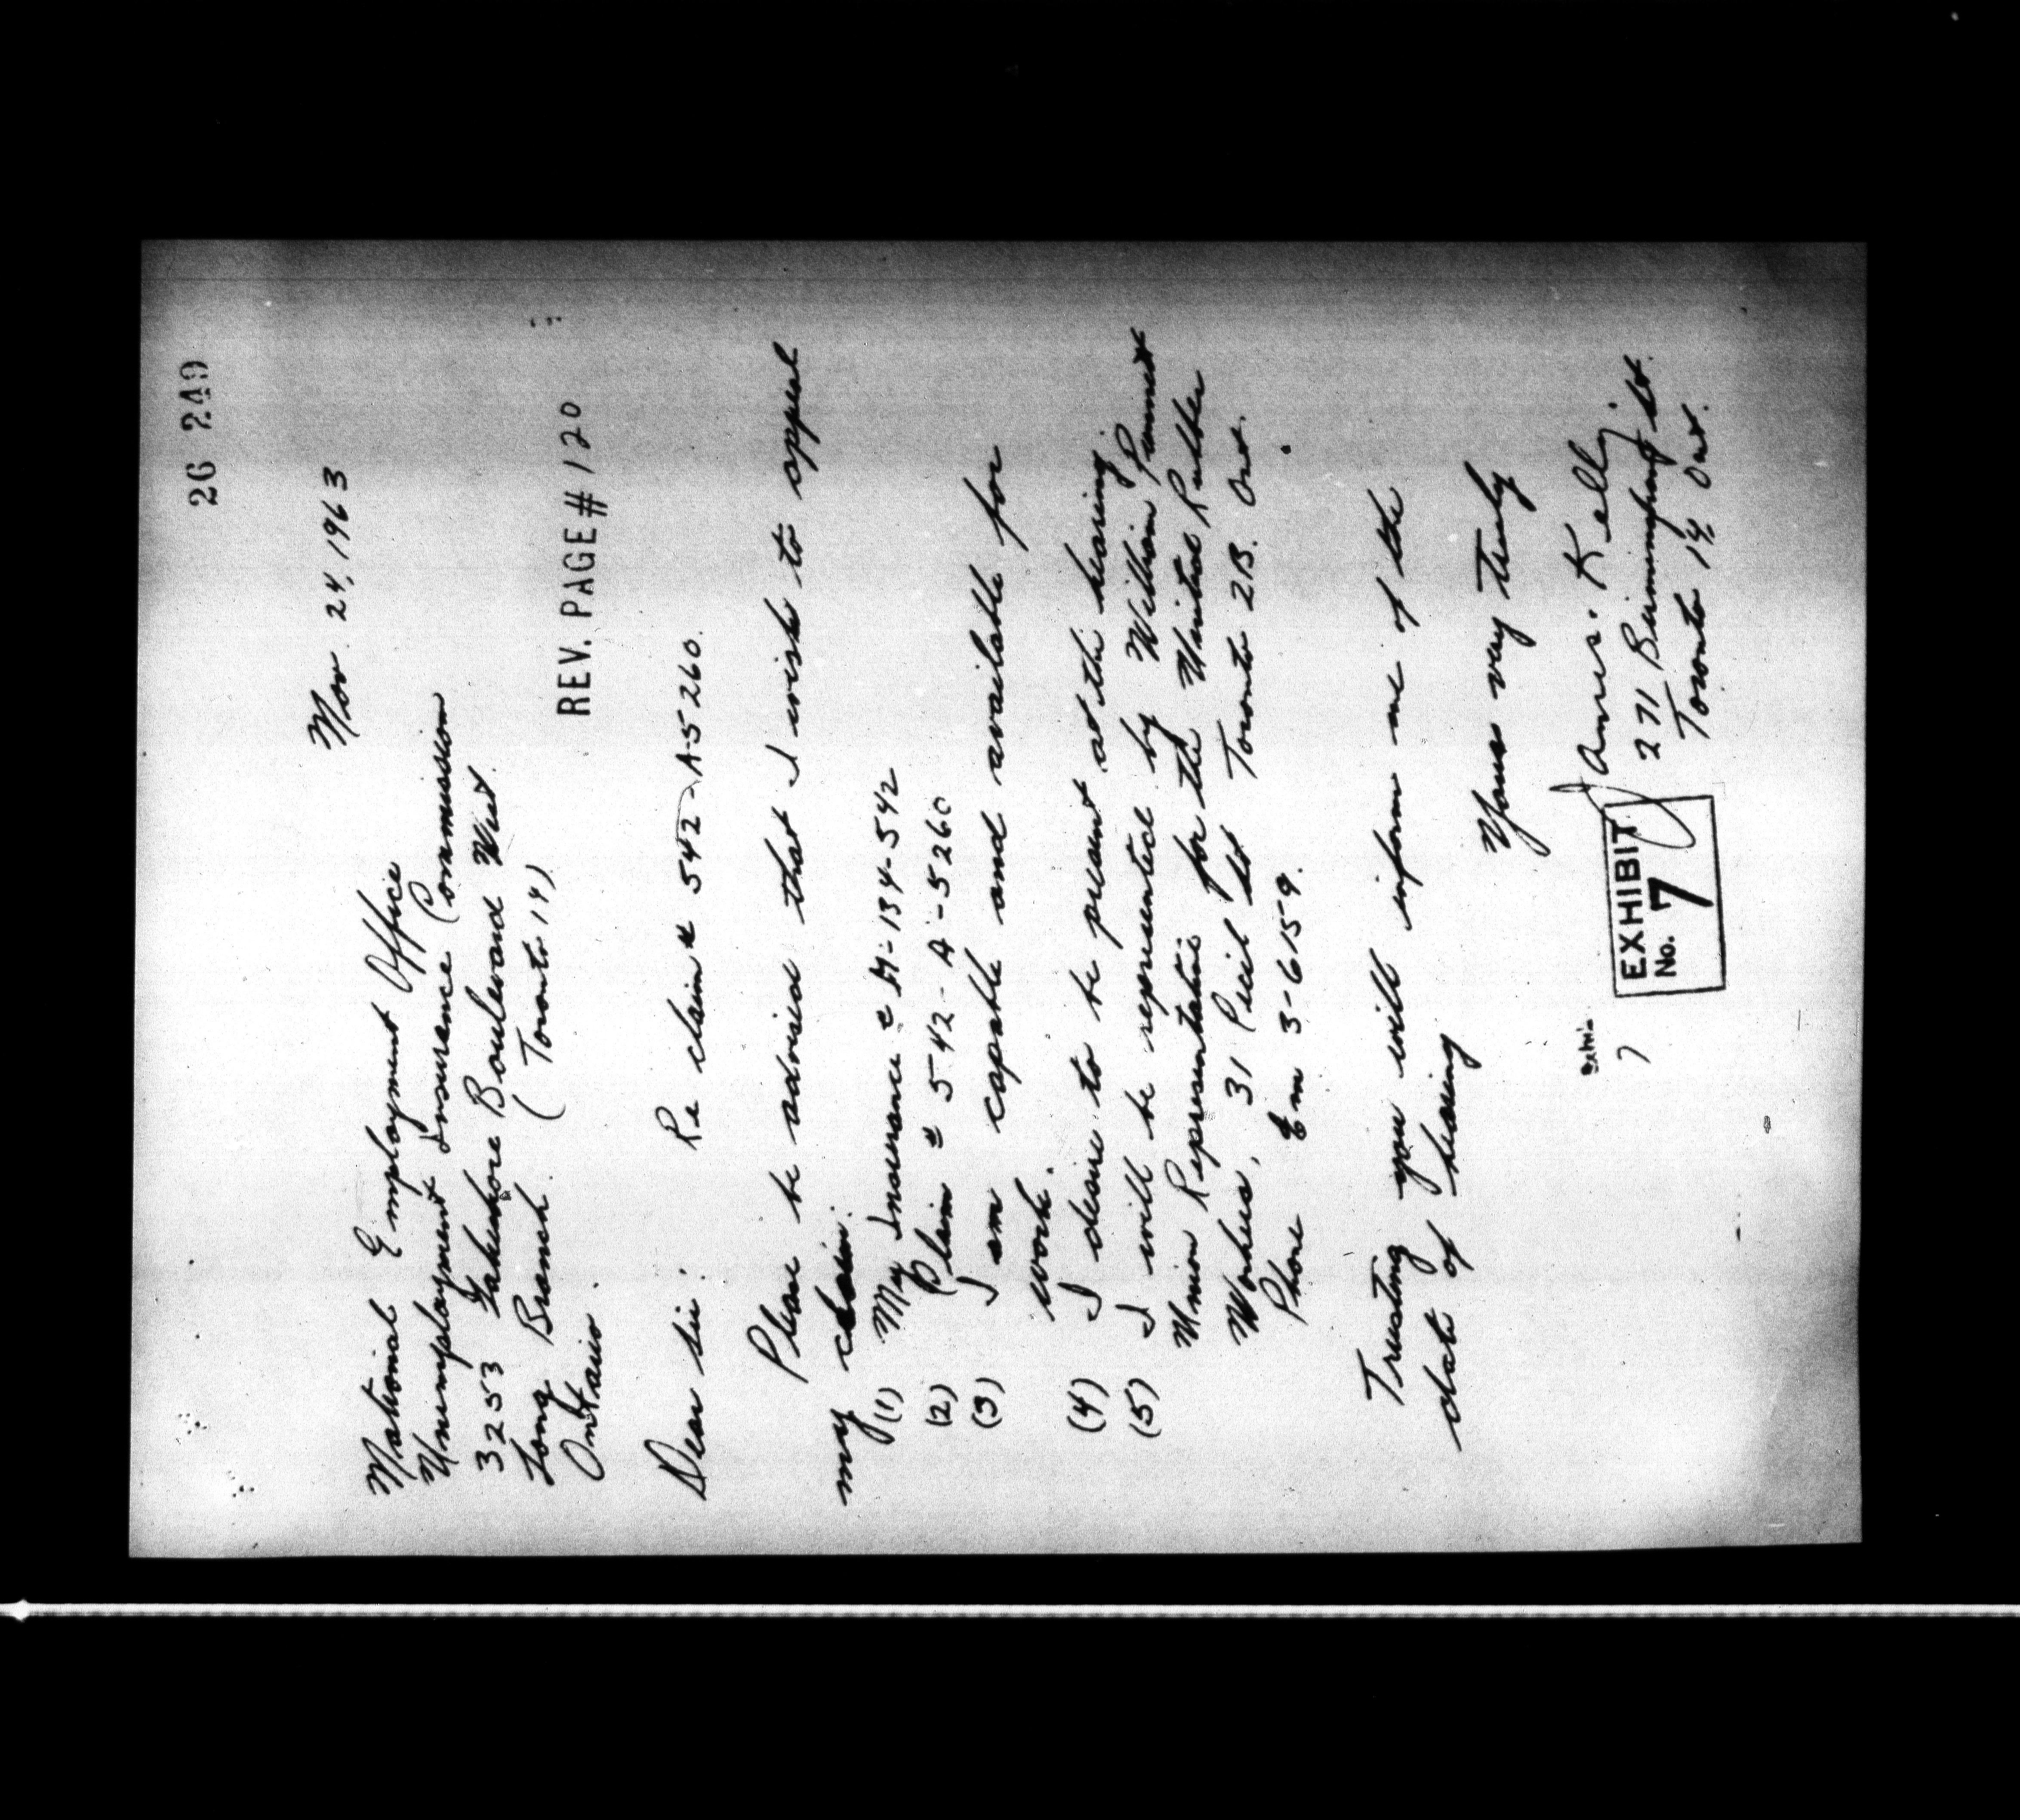 26 249
Nov. 24, 1963
National Employment Office
Unemployment Insurance Commission
3253 Lakeshore Boulevard West
Long Branch. (Toronto 14)
Ontario.
REV. PAGE # 120
Dear sir Re claim # 542-A-5260.
Please be advised that I wish to appeal
my claim.
(1) My Insurance # M-134-542
(2) Claim # 542-A-5260
(3) I am capable and available for
work.
(4) I desire to be present at the hearing
(5) I will be represented by William
Union Representative for the United Rubber
Workers, 31 Cecil St Toronto 2B. Ont.
Phone Em 3-6159.
Trusting you will inform me of the
date of hearing
Yours very truly
James Kelly.
271 Birmingham St.
Toronto 14, Ont.
EXHIBIT
No. 7
7